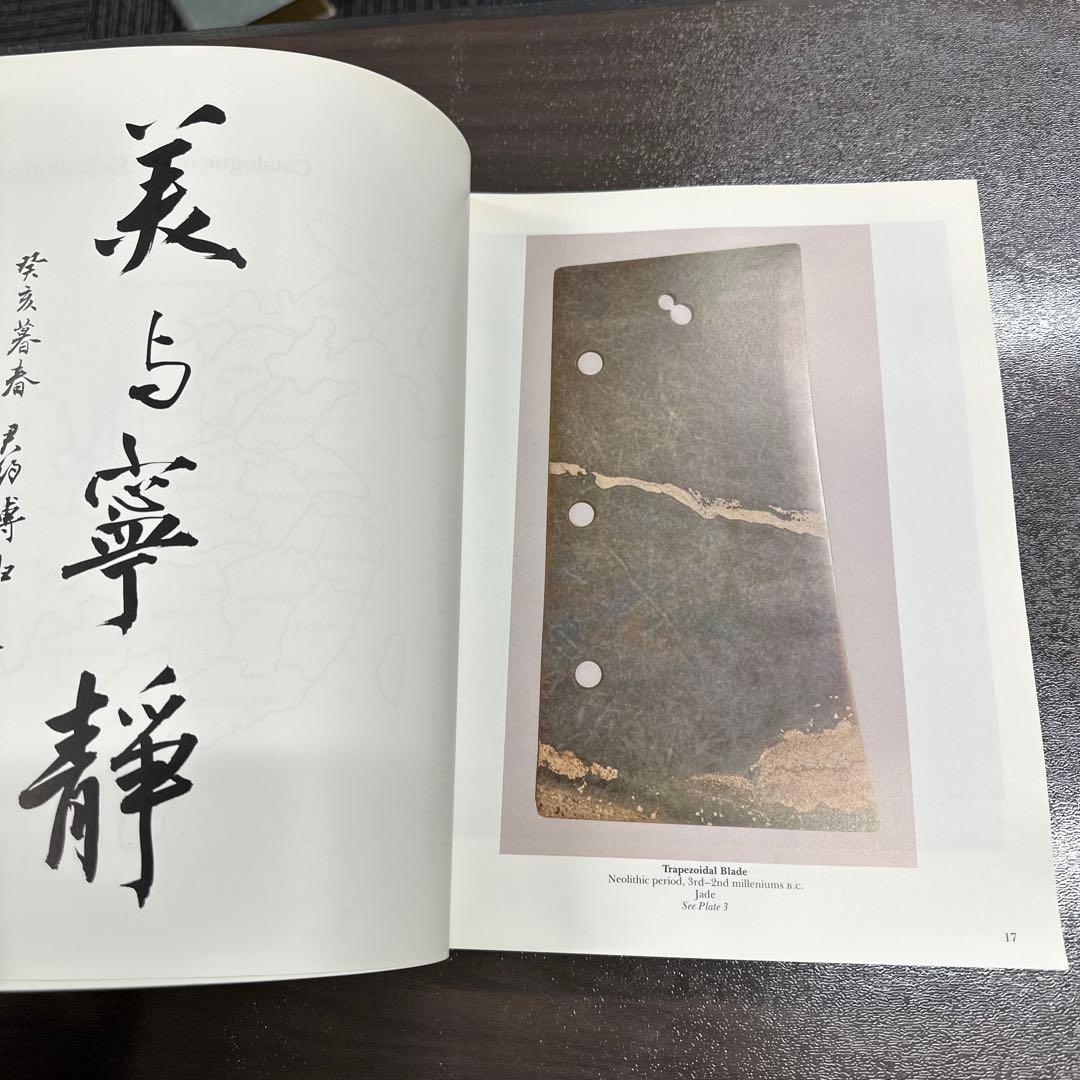 美与寧靜
癸亥暮春
Trapezoidal Blade
Neolithic period, 3rd–2nd milleniums B.C.
Jade
See Plate 3
17